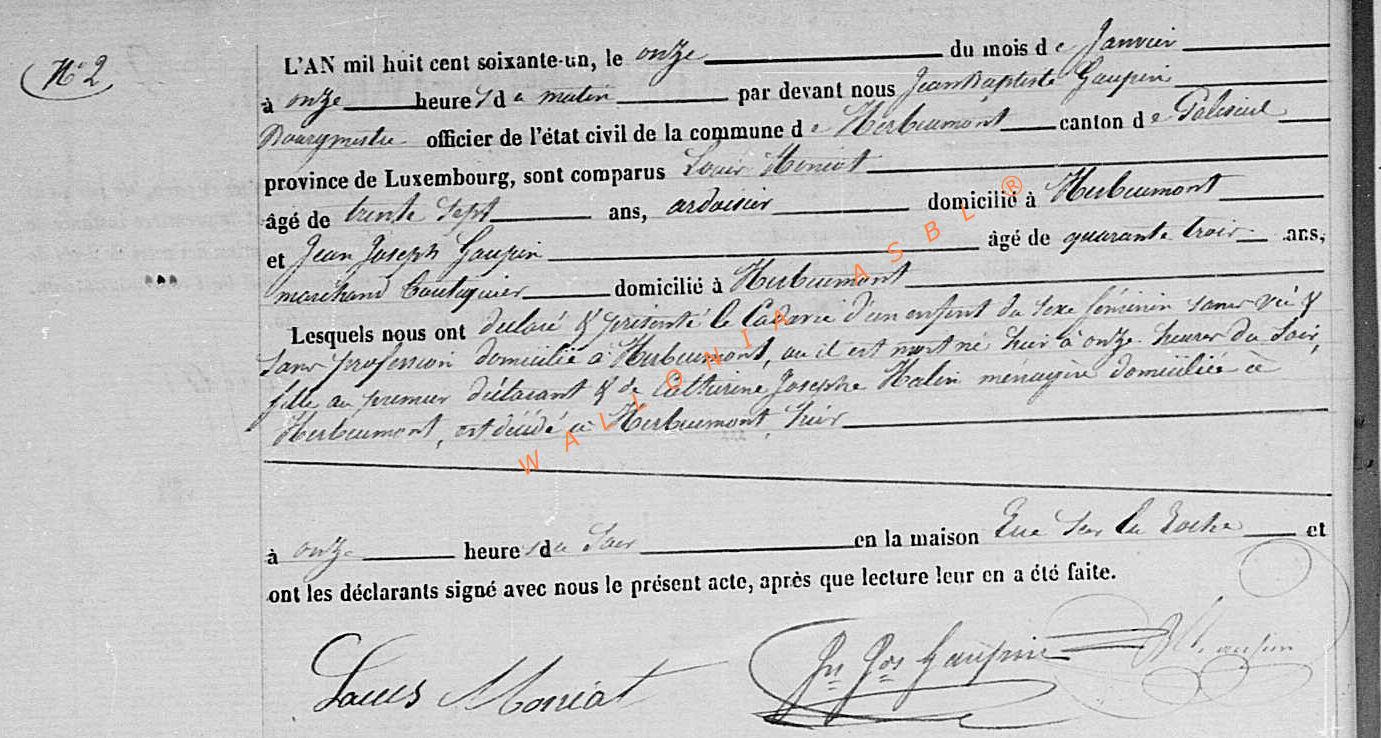 N° 2
L'AN mil huit cent soixante-un, le onze du mois de Janvier
à onze heures du matin par devant nous Jean Baptiste Gaupin
Bourgmestre officier de l'état civil de la commune de Herbeumont canton de Paliseul
province de Luxembourg, sont comparus Louis Moniot
âgé de trente sept ans, ardoisier domicilié à Herbeumont
et Jean Joseph Gaupin âgé de quarante trois ans,
marchand boutiquier domicilié à Herbeumont
Lesquels nous ont déclaré & présenté le Cadavre d'un enfant du sexe féminin sans vie &
sans profession domicilié à Herbeumont, où il est mort né hier à onze heures du soir,
fille au premier déclarant & de Catherine Josephe Halin ménagère domiciliée à
Herbeumont, est décédé à Herbeumont, hier
à onze heures du soir en la maison Rue sur la Roche et
ont les déclarants signé avec nous le présent acte, après que lecture leur en a été faite.
Louis Moniot Jn Jos Gaupin
WALLONIA ASBL ®